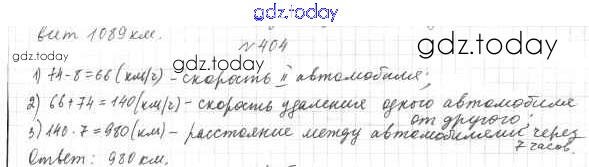 gdz.today
вит 1089 км.
№404
gdz.today
gdz.today
1) 74-8=66(км/г) - скорость II автомобиля;
2) 66+74=140(км/г) - скорость удаление одного автомобиля
от другого;
3) 140·7=980(км) - расстояние между автомобилями через
7 часов.
Ответ: 980 км.
gdz.today
gdz.today